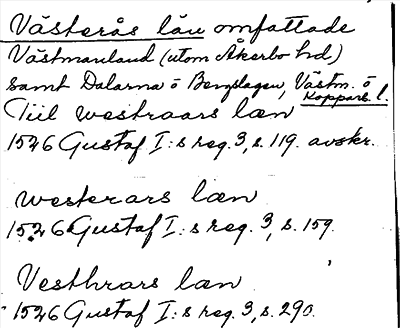 Västerås län omfattade
Västmanland (utom Åkerbo hd.)
samt Dalarna o Bergslagen, Västm. o
Kopparb. l.
Till westraars læn
1526 Gustaf I:s reg. 3, s. 119. avskr.
westerars læn
1526 Gustaf I:s reg. 3, s. 159.
Vesthrars læn
1526 Gustaf I:s reg. 3, s. 290.